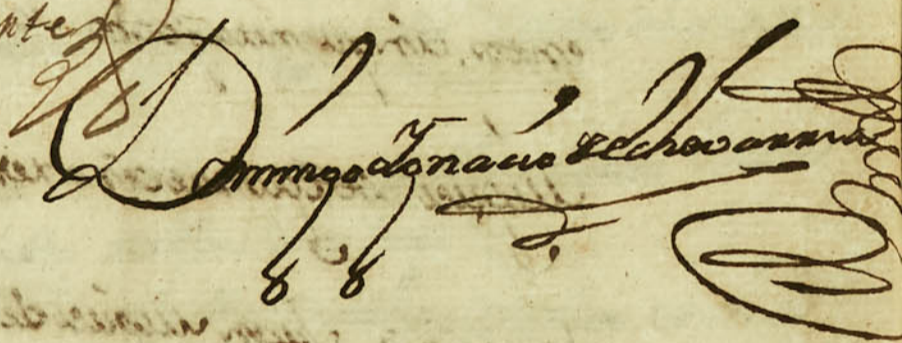 nte
Domingo Ignacio de Echevarria